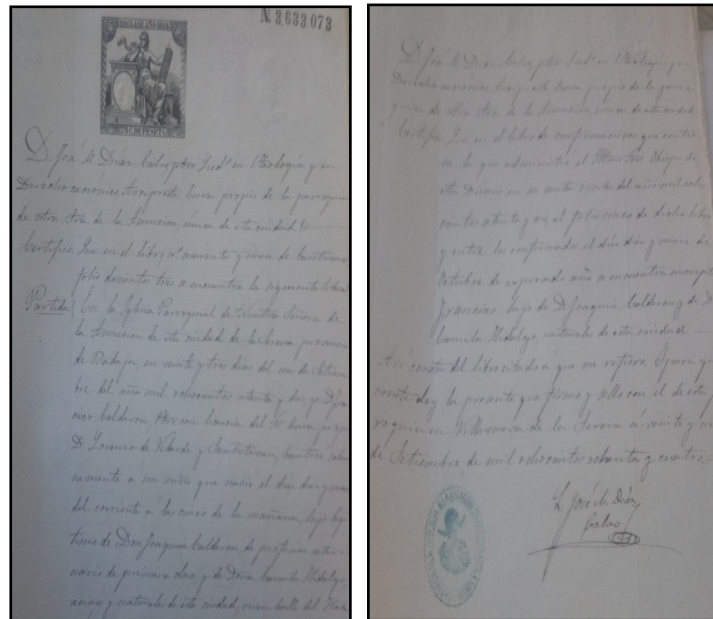 N 3,633,073
75 C. DE PESETA
D. José M. Díaz Calvo pbro Licdo en Teología y en
Derecho canónico, Arcipreste, Cura propio de la parroquia
de ntra Sra de la Asuncion, única de esta ciudad &
Certifico: Que en el libro nº cuarenta y nueve de bautismos
folio doscientos tres se encuentra la siguiente
Partida En la Iglesia Parroquial de Nuestra Señora de
la Asuncion de esta ciudad de la Serena, provincia
de Badajoz, en veinte y tres dias del mes de Setiem
bre del año mil ochocientos setenta y dos, yo D. Fran
cisco Calderon, Pbro con licencia del Sr Cura propio
D. Lorenzo de Velarde y Santisteban, bauticé solem
nemente a un niño que nació el dia diez y nueve
del corriente á las cinco de la mañana, hijo legi
timo de Don Joaquin Calderon, de profesion veteri
nario de primera clase, y de Doña Camila Hidalgo
y naturales de esta ciudad, calle del
D. José M. Díaz Calvo pbro Licdo en Teología y en
Derecho canónico, Arcipreste, Cura propio de la parro
quia de ntra Sra de la Asuncion, única de esta ciudad
Certifico: Que en el libro de confirmaciones que
en la que administró el Obispo de
esta Diócesis en su santa visita del año mil ocho
cientos setenta y seis al folio cinco de dicho libro
y entre los confirmados el dia diez y nueve de
Octubre de expresado año se encuentra inscripto
Francisco hijo de D. Joaquin Calderon y de Dª
Camila Hidalgo, naturales de esta ciudad
Así consta del libro citado á que me refiero. Y para que
conste doy la presente que firmo y sello con el de esta pa
rroquia en Villanueva de la Serena á veinte y
de Setiembre de mil ochocientos ochenta y cuatro.=
L. José M. Díaz
Calvo